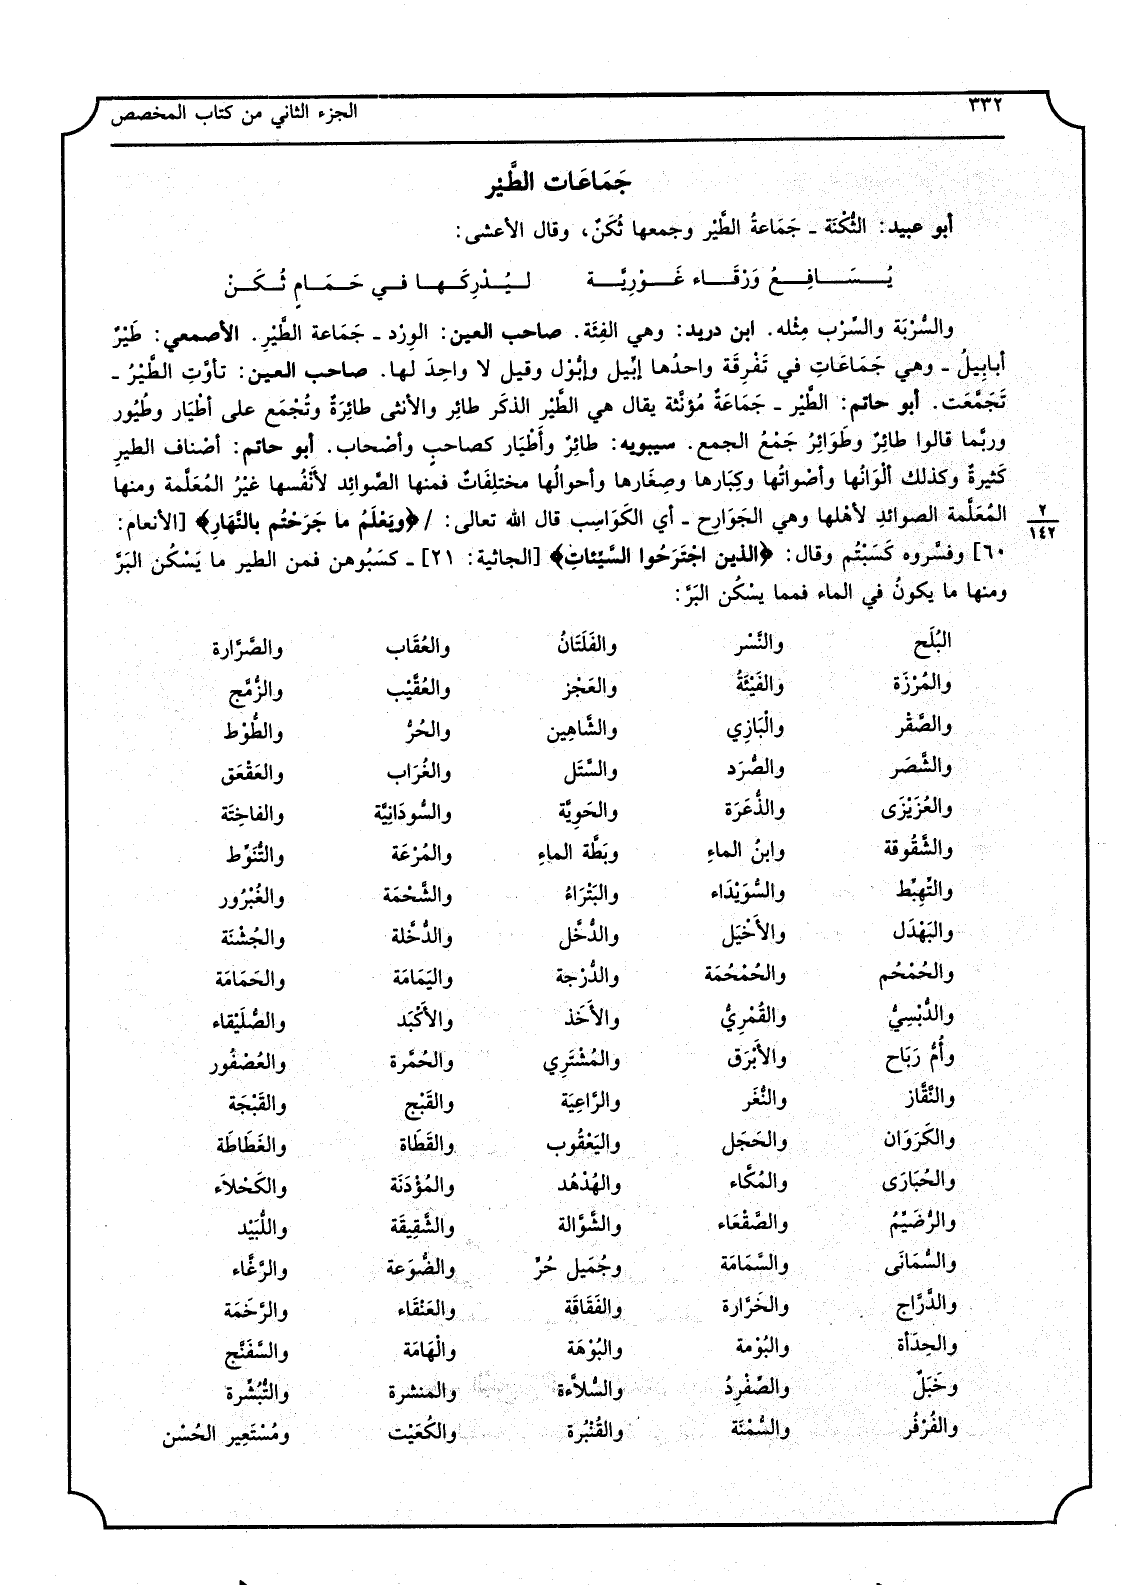 ٣٣٢ الجزء الثاني من كتاب المخصص
جَمَاعَات الطَّيْر
أبو عبيد: الثُّكْنَة ـ جَمَاعةُ الطَّيْر وجمعها ثُكَنٌ، وقال الأعشى:
يُسَافِعُ وَرْقَاء غَوْرِيَّة ليُدْرِكَها في حَمَامٍ ثُكَنْ
والسُّرْبَة والسِّرْب مِثْله. ابن دريد: وهي الفِئَة. صاحب العين: الوِرْد ـ جَمَاعة الطَّيْرِ. الأصمعي: طَيْرٌ
أبابِيلُ ـ وهي جَمَاعَاتِ في تَفْرِقَة واحدُها إبِّيل وإبُّوْل وقيل لا واحِدَ لها. صاحب العين: تأوَّتِ الطَّيْرُ ـ
تَجَمَّعَت. أبو حاتم: الطَّيْر ـ جَمَاعَةٌ مُؤنَّثة يقال هي الطَّيْر الذكَر طائِر والأنثى طائِرَةٌ وتُجْمَع على أطْيَار وطُيُور
وربَّما قالوا طائِرٌ وطَوَائِرُ جَمْعُ الجمع. سيبويه: طائِرٌ وأَطْيَار كصاحبٍ وأصْحاب. أبو حاتم: أصْناف الطيرِ
كَثيرةٌ وكذلك ألْوَانُها وأصْواتُها وكِبَارها وصِغَارها وأحوالُها مختلِفَاتٌ فمنها الصَّوائِد لأَنْفُسها غيْرُ المُعَلَّمة ومنها
المُعَلَّمة الصوائدِ لأهْلها وهي الجَوَارِح ـ أي الكَوَاسِب قال الله تعالى: / ﴿ويَعْلَمُ ما جَرَحْتُم بالنَّهَارِ﴾ [الأنعام: ٢/١٤٢
٦٠] وفسَّروه كَسَبْتُم وقال: ﴿الذين اجْتَرَحُوا السَّيِّئاتِ﴾ [الجاثية: ٢١] ـ كسَبُوهن فمن الطير ما يَسْكُن البَرَّ
ومنها ما يكونُ في الماء فمما يسْكُن البَرَّ:
البُلَح والنَّسْر والفَلَتَانُ والعُقَاب والصَّرَّارة
والمُرْزَة والفَيْئَةُ والعَجْز والعُقَّيْب والزُّمَّج
والصَّقْر والْبَازِي والشَّاهِين والحُرُّ والطُّوْط
والشَّصَر والصُّرَد والسَّتَل والغُرَاب والعَقْعَق
والعُزَيْزَى والذُّعَرَة والحَوِيَّة والسُّودَانِيَّة والفاخِتَة
والشَّقُوقة وابنُ الماءِ وبَطَّة الماءِ والمُرْعَة والتُّنَوِّط
والتِّهِبِّط والسُّوَيْدَاء والبَتْرَاءُ والشَّحْمَة والغُبْرُور
والبَهْدَل والأَخْيَل والدُّخَّل والدُّخَّلة والجُشْنَة
والحُمْحُم والحُمْحُمَة والدُّرْجة واليَمَامَة والحَمَامَة
والدُّبْسِيُّ والقُمْرِيُّ والأَخَذ والأَكْبَد والصُّلَيْقاء
وأُمُّ رَبَاح والأَبْرَق والمُشْتَرِي والحُمَّرة والعُصْفُور
والنَّقَّاز والنُّغَر والرَّاعِيَة والقَبْج والقَبْجَة
والكَرَوَان والحَجَل واليَعْقُوب والقَطَاة والغَطَاطَة
والحُبَارَى والمُكَّاء والهُدْهُد والمُؤْدَنَة والكَحْلاَء
والرُّضَيِّمُ والصَّقْعَاء والشَّوَّالة والشَّقِيقَة واللُّبَيْد
والسُّمَانَى والسَّمَامَة وجُمَيل حُرٍّ والضُّوَعة والرَّغَّاء
والدَّرَّاج والخَرَّارة والفَقَاقَة والعَنْقَاء والرَّخَمَة
والحِدَأة والبُوْمة والبُوْهَة والْهَامَة والسَّفَنَّج
وخَبَلٌ والصِّفْرِدُ والسُّلاَّءة والمنشرة والتُّبُشِّرة
والفُرْفُر والسُّمْنَة والقُنْبُرة والكُعَيْت ومُسْتَعِير الحُسْن